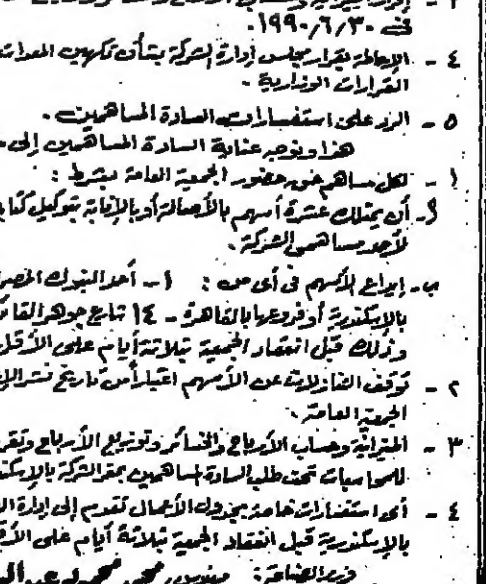 في ١٩٩٠/٦/٣٠.
٤ - الإحاطة بقرار مجلس إدارة الشركة بشأن تكهين المعدات
القرارات الوزارية.
٥ - الرد على استفسارات السادة المساهمين.
هذا ونوجه عناية السادة المساهمين إلى
١ - لكل مساهم حق حضور الجمعية العامة بشرط :
أ - أن يمتلك عشرة أسهم بالأصالة أو بالإنابة بتوكيل كتابي
لأحد مساهمي الشركة.
ب - إيداع الأسهم في أي من : ١ - أحد البنوك
بالإسكندرية أو فروعها بالقاهرة - ١٤ شارع جوهر القائد
وذلك قبل انعقاد الجمعية بثلاثة أيام على الأقل
٢ - توقف التنازلات عن الأسهم اعتباراً من تاريخ نشر
الجمعية العامة.
٣ - الميزانية وحساب الأرباح والخسائر وتوزيع الأرباح
للمحاسبات تحت طلب السادة المساهمين بمقر الشركة
٤ - أي استفسارات خاصة بجدول الأعمال تقدم إلى إدارة
بالإسكندرية قبل انعقاد الجمعية بثلاثة أيام على
وزير الصناعة : مهندس محمد محمود